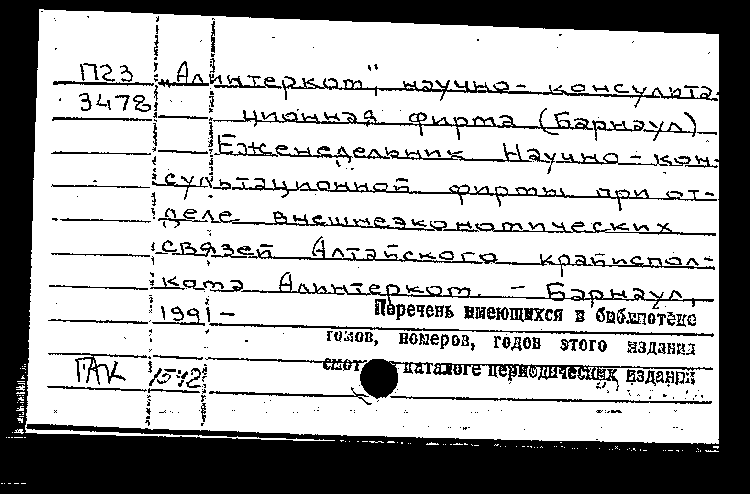 П23 „Алинтерком", научно-консульта-
3478 ционная фирма (Барнаул)
Еженедельник Научно-кон-
сультационной фирмы при от-
деле внешнеэкономических
связей Алтайского крайиспол-
кома Алинтерком. - Барнаул,
1991 -
Перечень имеющихся в библиотеке
томов, номеров, годов этого издания
смот. каталоге периодических издании
ГАК 1572